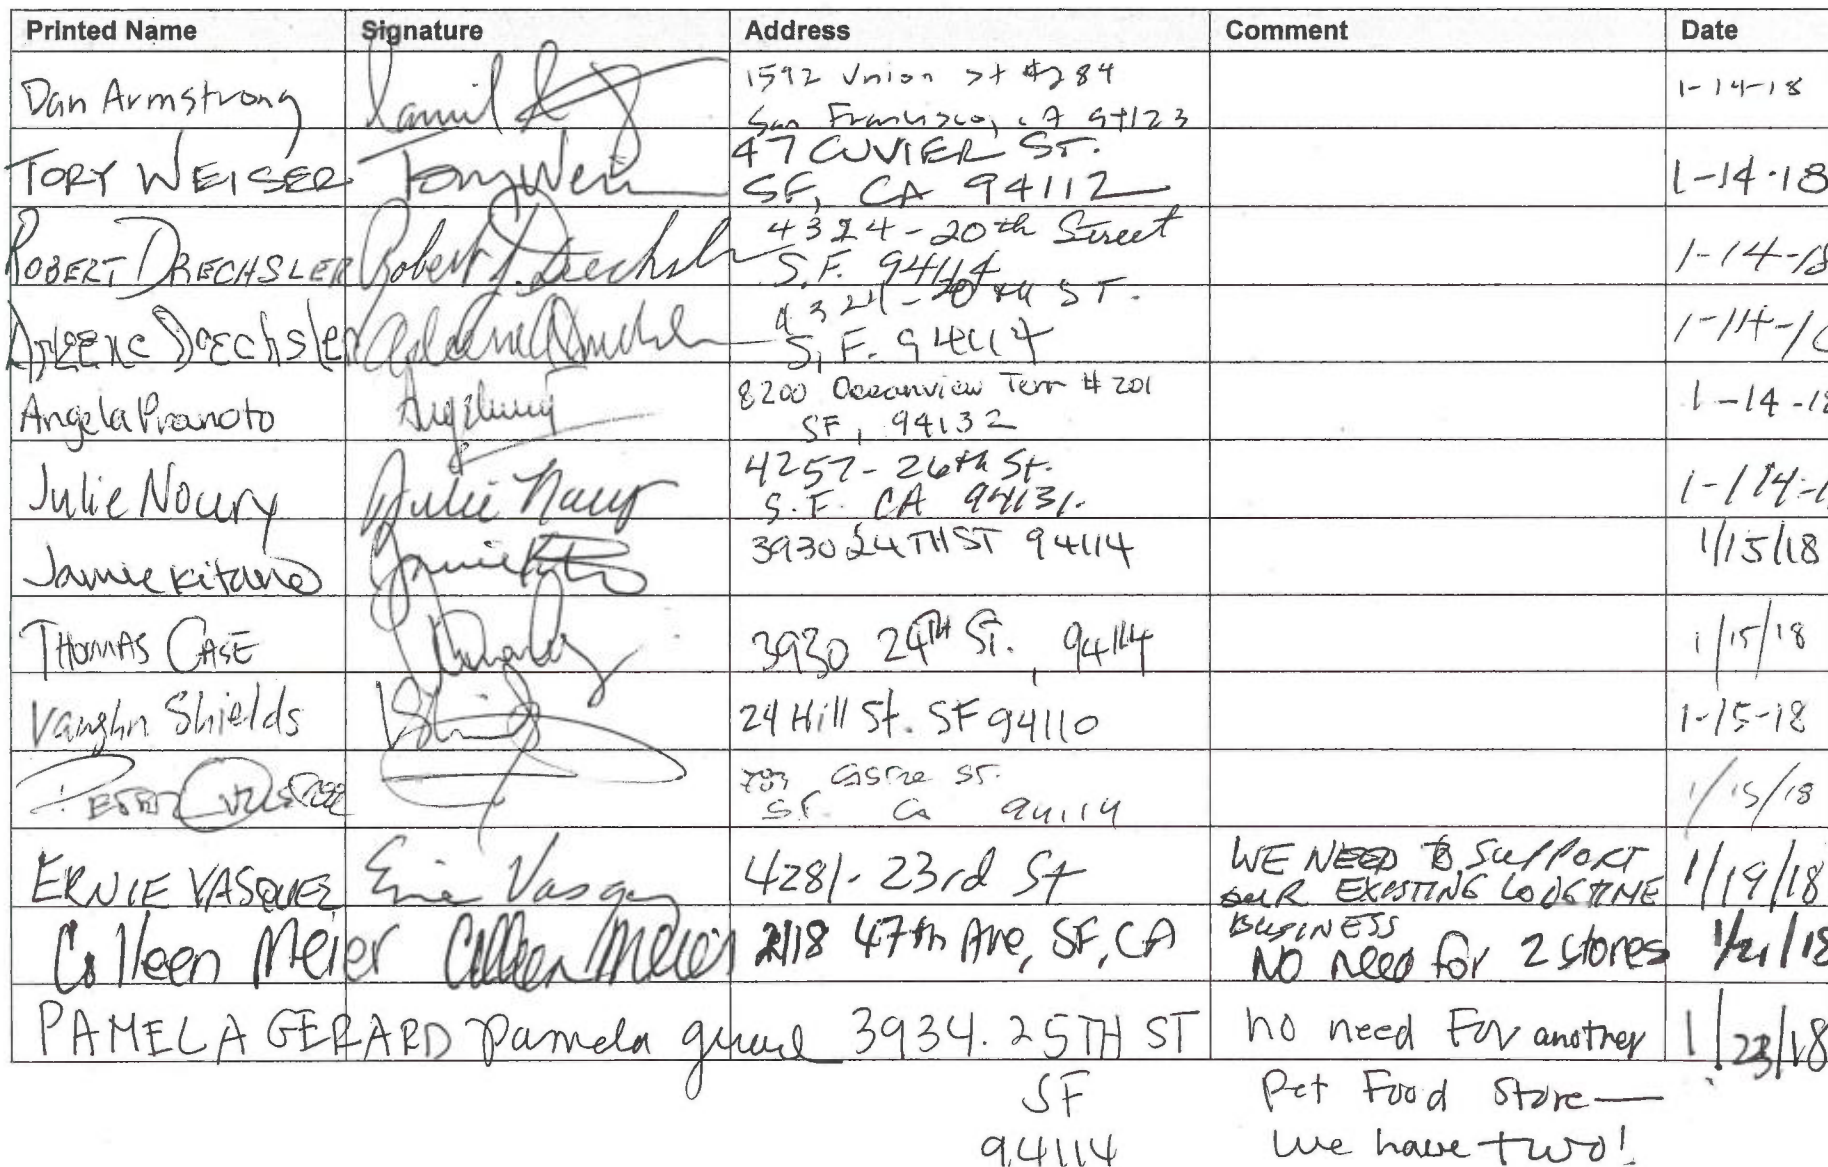 Printed Name Signature Address Comment Date
Dan Armstrong 1592 Union St #284 1-14-18
San Francisco, CA 94123
TORY WEISER Tory Weis 47 CUVIER ST. 1-14-18
SF, CA 94112
ROBERT DRECHSLER Robert J. Drechsler 4324-20th Street 1-14-18
S.F. 94114
Arleene Drechsler 4324-20th ST. 1-14-1
S.F. 94114
Angela Pranoto 8200 Oceanview Terr #201 1-14-18
SF, 94132
Julie Noury Julie Noury 4257-26th St. 1-14-1
S.F. CA 94131.
Jamie Kitano 3930 24TH ST 94114 1/15/18
THOMAS CASE 3930 24TH ST., 94114 1/15/18
Vaughn Shields 24 Hill St. SF 94110 1-15-18
PETER 783 ST. 1/15/18
S.F. Ca 94114
ERNIE VASQUEZ Ernie Vasquez 4281-23rd St WE NEED TO SUPPORT 1/19/18
OUR EXISTING LONGTIME
BUSINESS
Colleen Meier Colleen Meier 2118 47th Ave, SF, CA NO need for 2 stores 1/21/18
PAMELA GERARD Pamela Gerard 3934. 25TH ST no need For another 1/23/18
SF Pet Food Store—
94114 We have two!